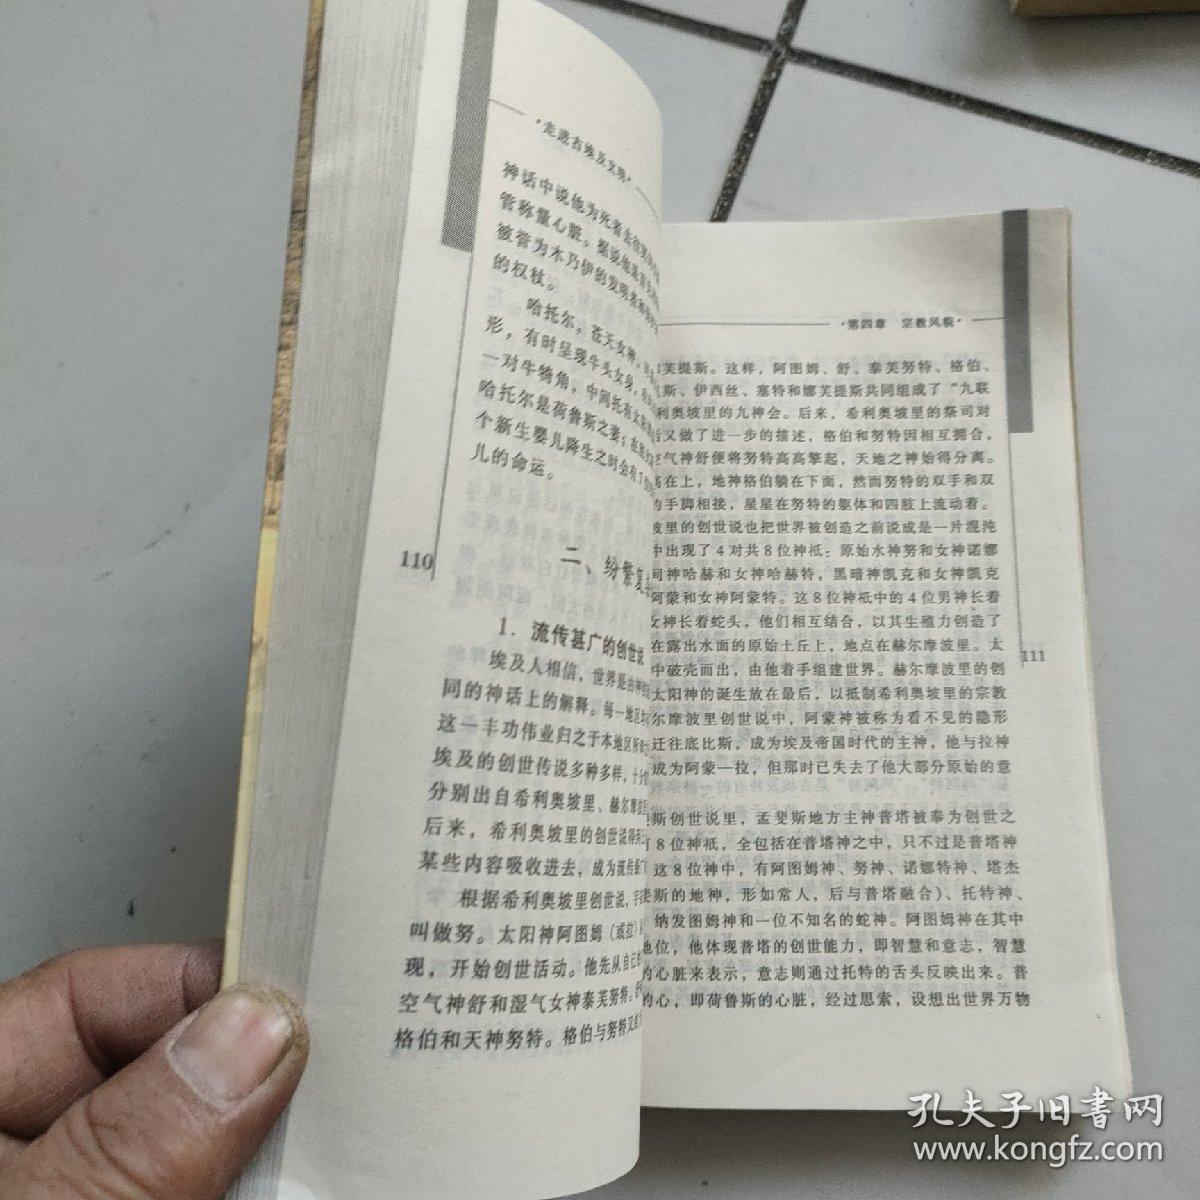 ·走进古埃及文明·
神话中说他为死者
管称量心脏。据说他
被誉为木乃伊的发明者
的权杖。
哈托尔，苍天女神，
形，有时呈现牛头女身，
一对牛犄角，中间托
哈托尔是荷鲁斯之妻；
个新生婴儿降生之时会有
儿的命运。
110
二、纷繁复
1．流传甚广的创世说
埃及人相信，世界是由神
同的神话上的解释。每一地区
这一丰功伟业归之于本地区所
埃及的创世传说多种多样，十分
分别出自希利奥坡里、赫尔摩坡里
后来，希利奥坡里的创世说得
某些内容吸收进去，成为流传最
根据希利奥坡里创世说，宇宙
叫做努。太阳神阿图姆（或拉）
现，开始创世活动。他先从自己
空气神舒和湿气女神泰芙努特。
格伯和天神努特。格伯与努特又
·第四章 宗教风貌·
芙提斯。这样，阿图姆、舒、泰芙努特、格伯、
斯、伊西丝、塞特和娜芙提斯共同组成了“九联
利奥坡里的九神会。后来，希利奥坡里的祭司对
又做了进一步的描述，格伯和努特因相互拥合，
空气神舒便将努特高高擎起，天地之神始得分离。
高在上，地神格伯躺在下面，然而努特的双手和双
的手脚相接，星星在努特的躯体和四肢上流动着。
坡里的创世说也把世界被创造之前说成是一片混沌
中出现了4对共8位神祇：原始水神努和女神诺娜
司神哈赫和女神哈赫特，黑暗神凯克和女神凯克
阿蒙和女神阿蒙特。这8位神祇中的4位男神长着
女神长着蛇头，他们相互结合，以其生殖力创造了
在露出水面的原始土丘上，地点在赫尔摩坡里。太
中破壳而出，由他着手组建世界。赫尔摩坡里的创
太阳神的诞生放在最后，以抵制希利奥坡里的宗教
尔摩坡里创世说中，阿蒙神被称为看不见的隐形
迁往底比斯，成为埃及帝国时代的主神，他与拉神
成为阿蒙—拉，但那时已失去了他大部分原始的意
斯创世说里，孟斐斯地方主神普塔被奉为创世之
8位神祇，全包括在普塔神之中，只不过是普塔神
这8位神中，有阿图姆神、努神、诺娜特神、塔杰
斯的地神，形如常人，后与普塔融合）、托特神、
纳发图姆神和一位不知名的蛇神。阿图姆神在其中
地位，他体现普塔的创世能力，即智慧和意志，智慧
的心脏来表示，意志则通过托特的舌头反映出来。普
的心，即荷鲁斯的心脏，经过思索，设想出世界万物
111
孔夫子旧书网
www.kongfz.com